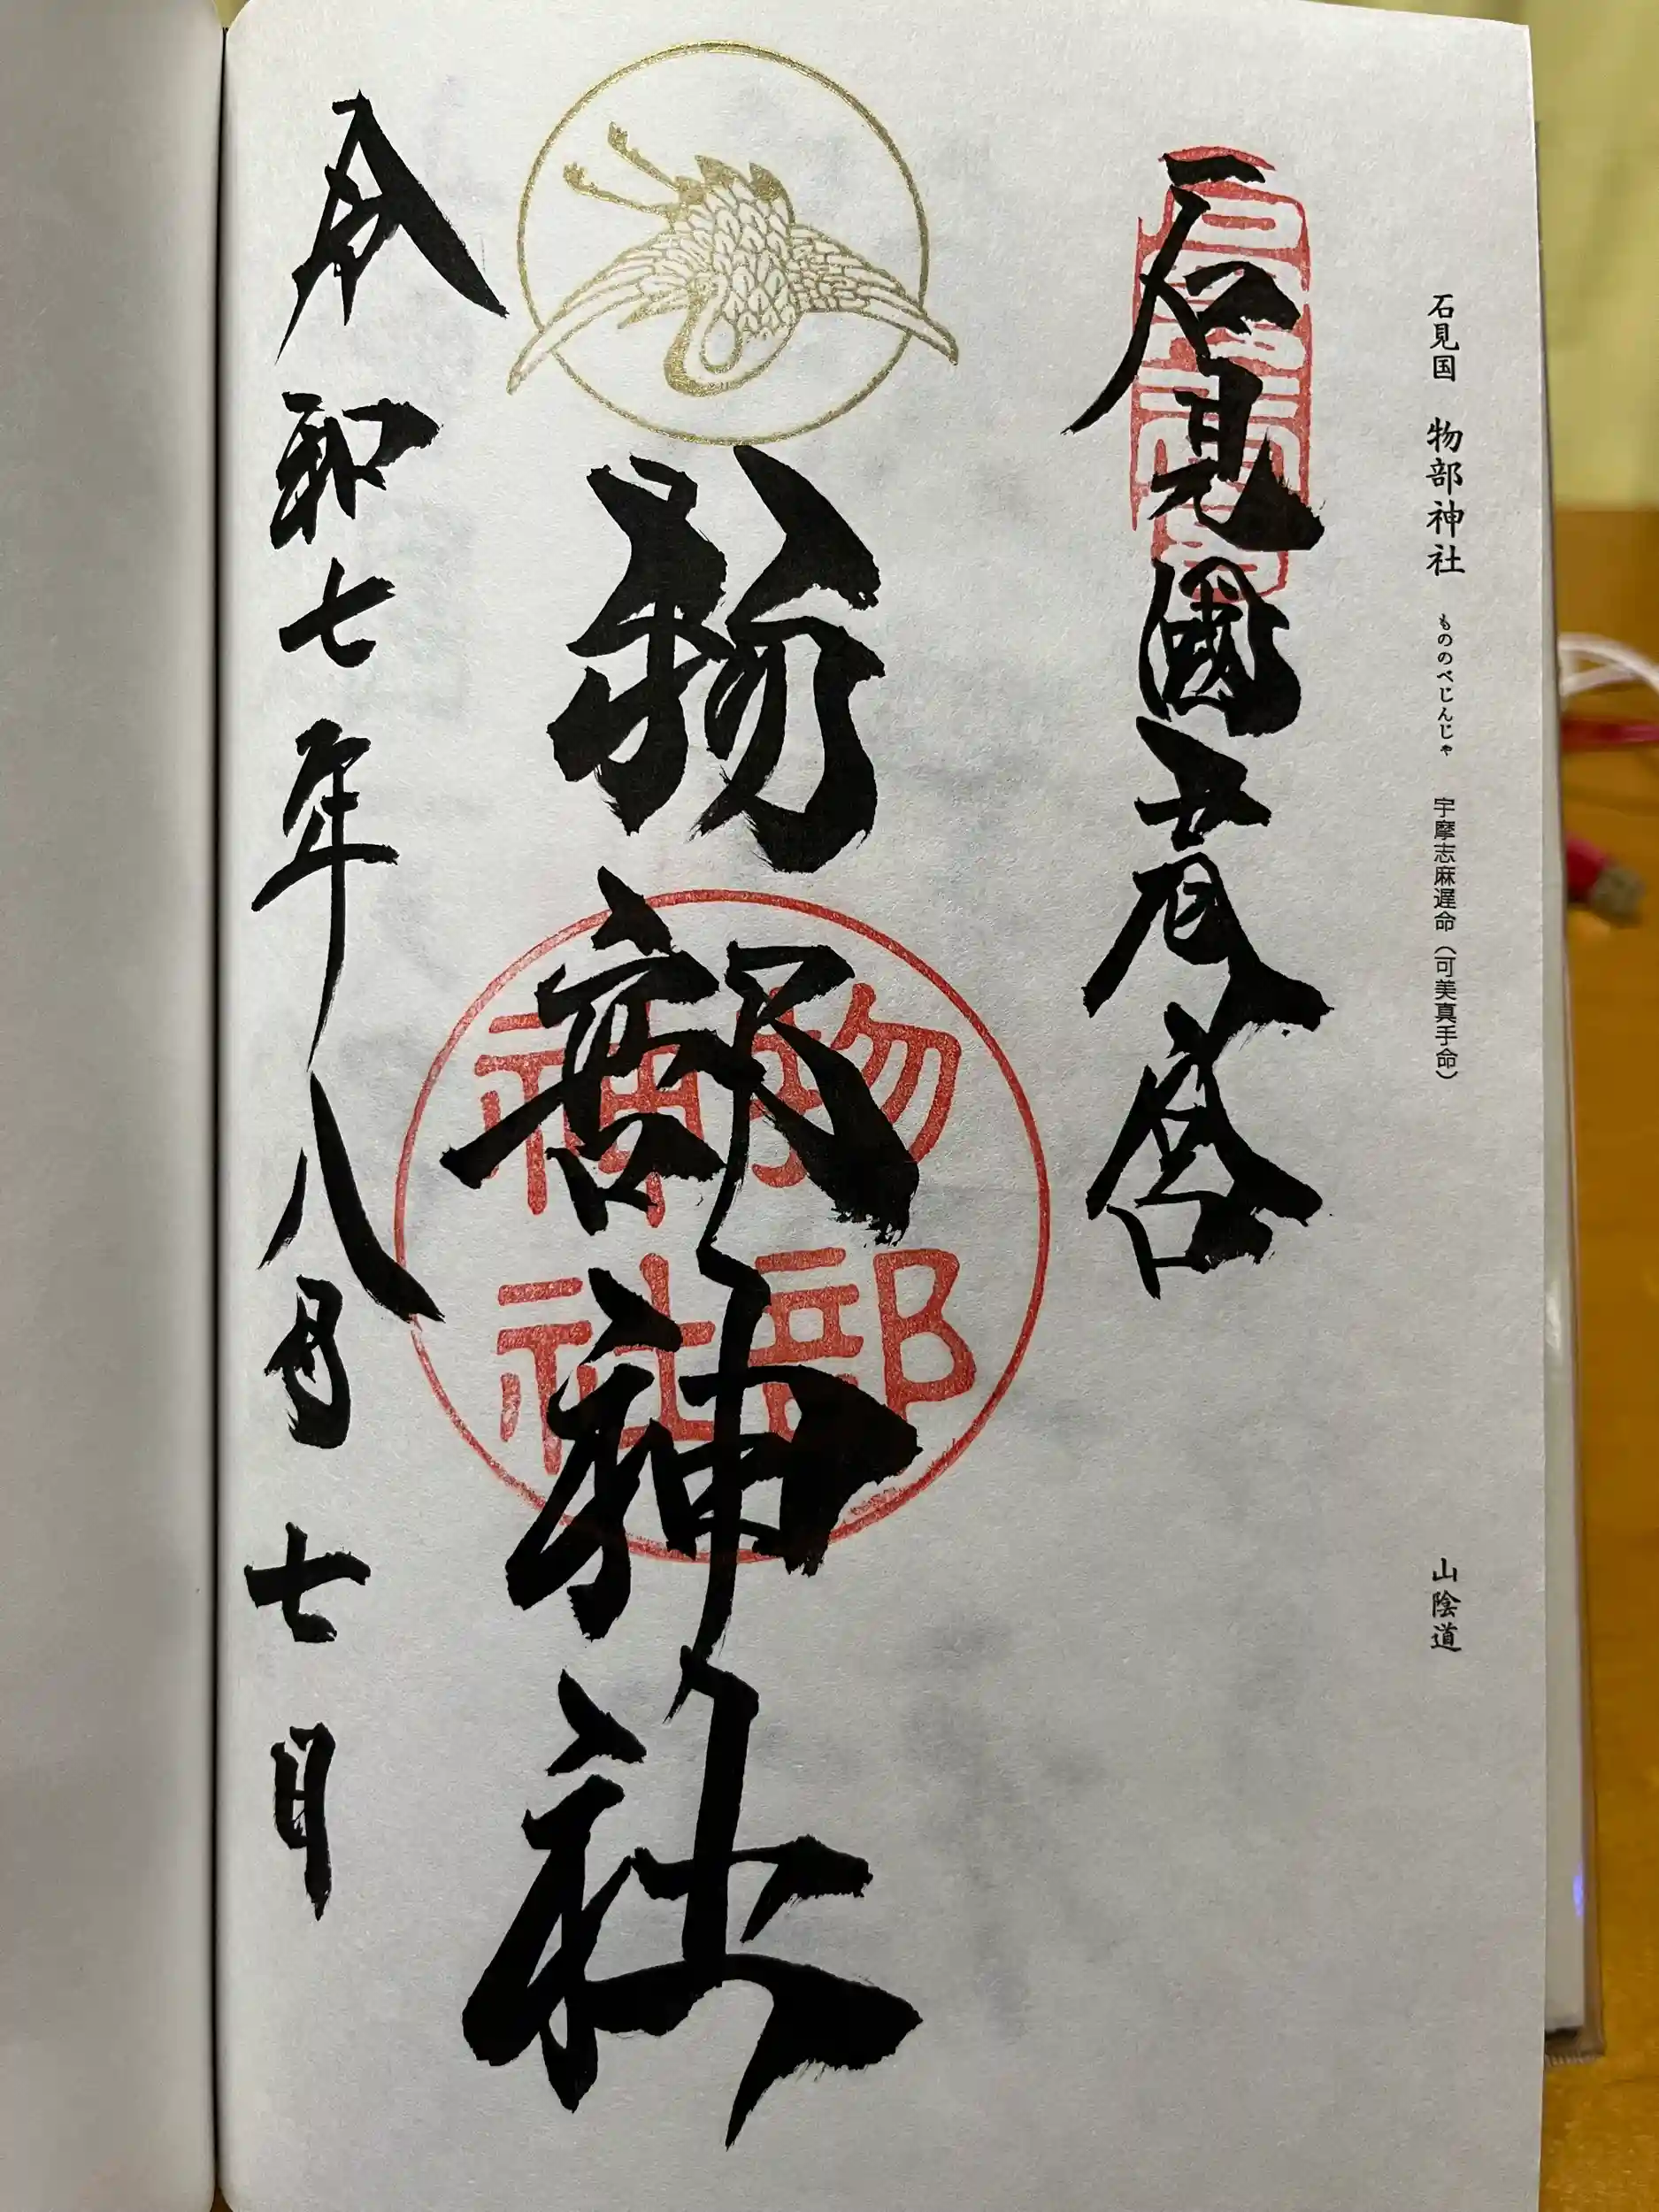 石見国 物部神社 もののべじんじゃ 宇摩志麻遅命(可美真手命) 山陰道
石見國一之宮
石見國一宮
物部神社
物部神社
令和七年八月七日